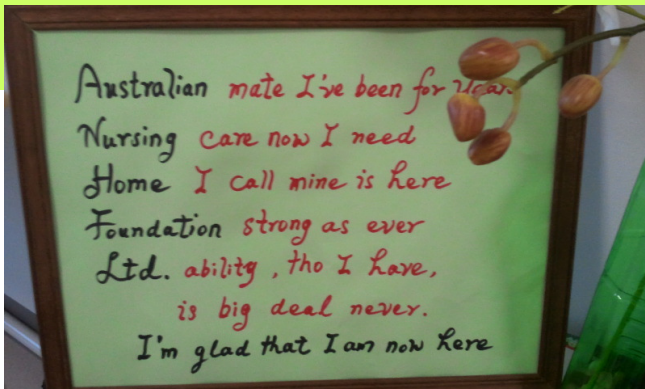 Australian mate I've been for Year.
Nursing care now I need
Home I call mine is here
Foundation strong as ever
Ltd. ability, tho I have,
is big deal never.
I'm glad that I am now here